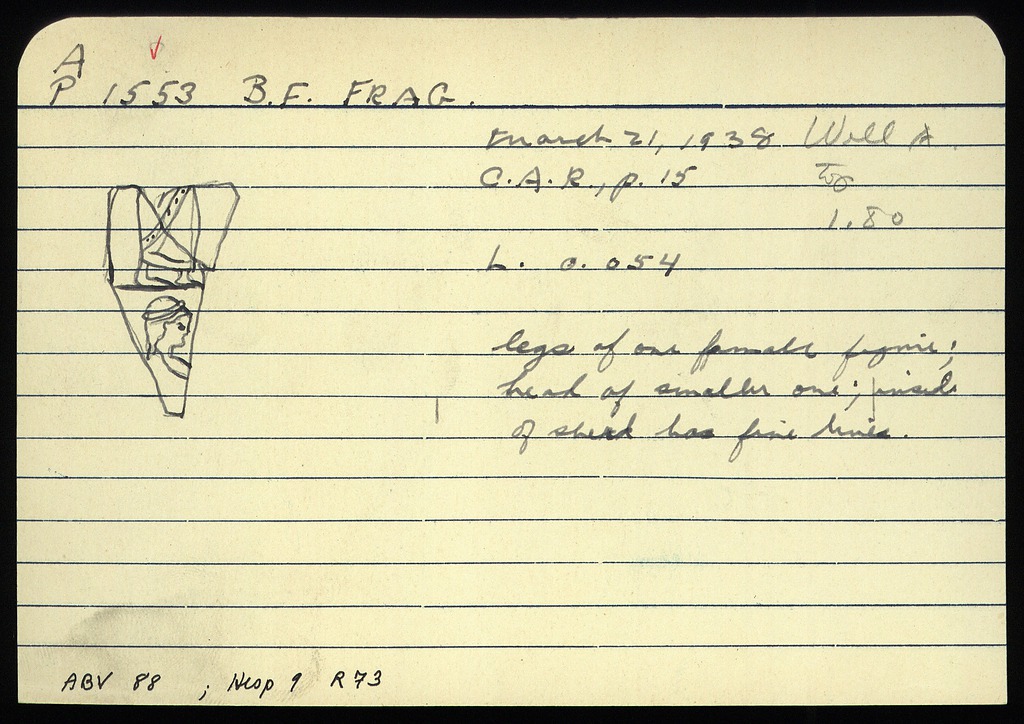 A
P 1553 B.F. FRAG.
March 21, 1938 Well A
C.A.R., p. 15 To
1.80
L. 0.054
legs of one female figure;
head of smaller one; inside
of sherd has fine lines.
ABV 88 ; Hesp 9 R73